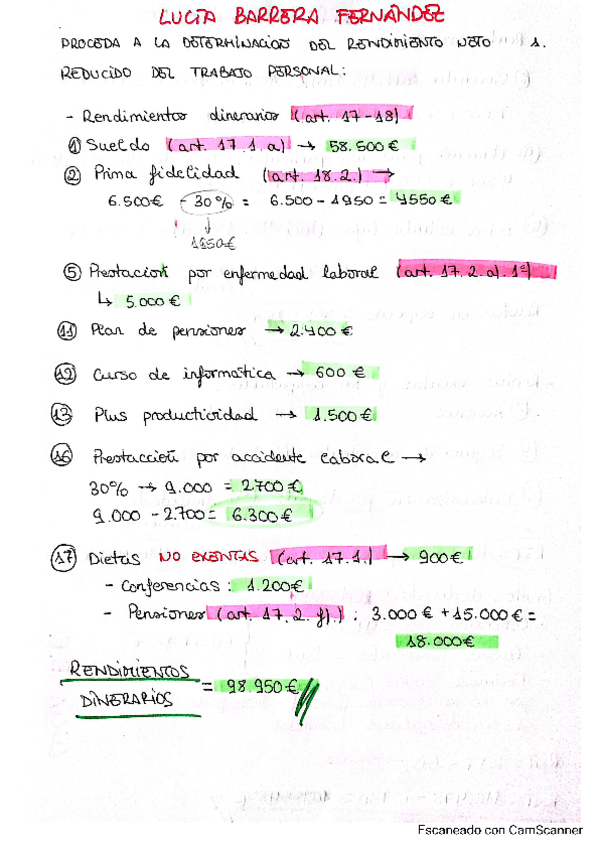 LUCÍA BARRERA FERNÁNDEZ
PROCEDA A LA DETERMINACIÓN DEL RENDIMIENTO NETO 1.
REDUCIDO DEL TRABAJO PERSONAL:
- Rendimientos dinerarios (art. 17-18)
① Sueldo (art. 17.1.a) → 58.500€
② Prima fidelidad (art. 18.2.) →
6.500€ - 30% = 6.500 - 1950 = 4550 €
↓
1950€
⑤ Prestación por enfermedad laboral (art. 17.2.a).1º)
↳ 5.000 €
⑪ Plan de pensiones → 2.400 €
⑫ Curso de informática → 600 €
⑬ Plus productividad → 1.500€
⑯ Prestación por accidente laboral →
30% → 9.000 = 2.700 €
9.000 - 2.700 = 6.300 €
⑰ Dietas NO EXENTAS (art. 17.1.) → 900€
- Conferencias: 1.200€
- Pensiones (art. 17.2.f).) : 3.000 € + 15.000 € =
18.000€
RENDIMIENTOS
DINERARIOS = 98.950€
Escaneado con CamScanner